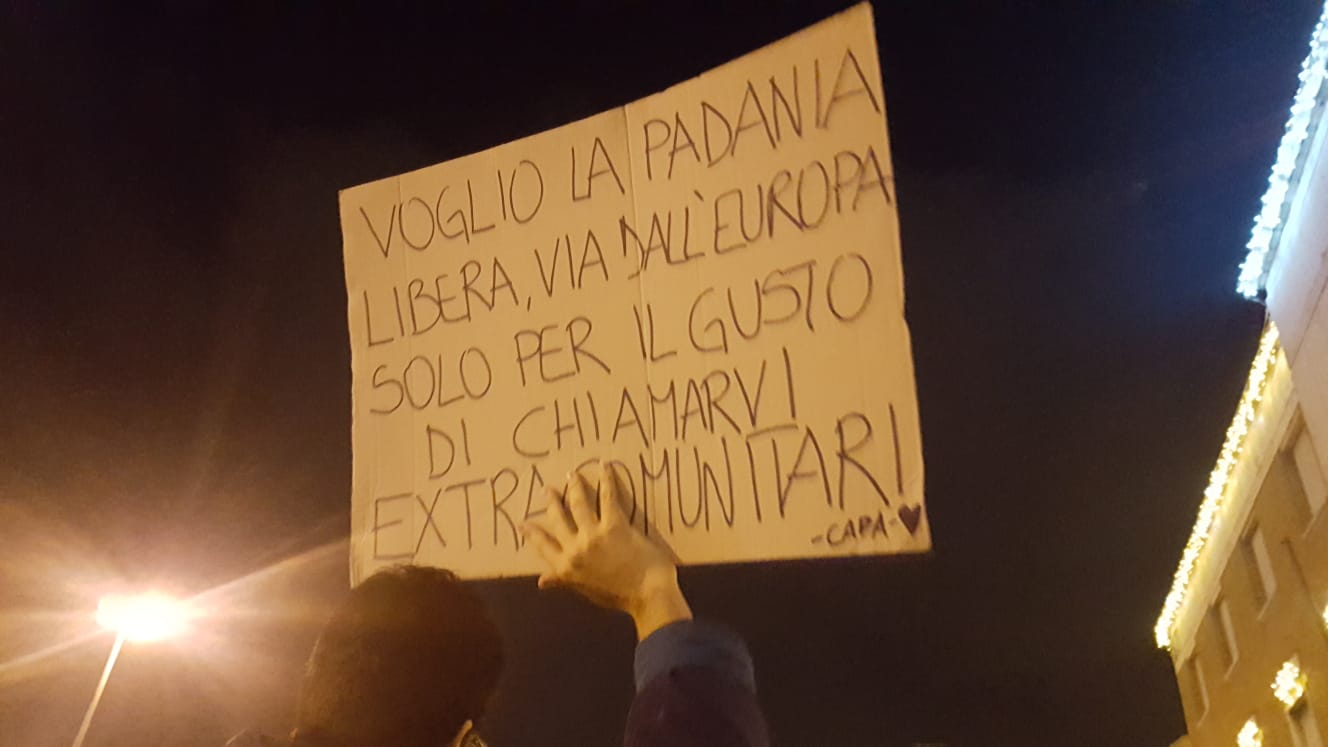 VOGLIO LA PADANIA
LIBERA, VIA DALL'EUROPA
SOLO PER IL GUSTO
DI CHIAMARVI
EXTRACOMUNITARI
-CAPA-♥